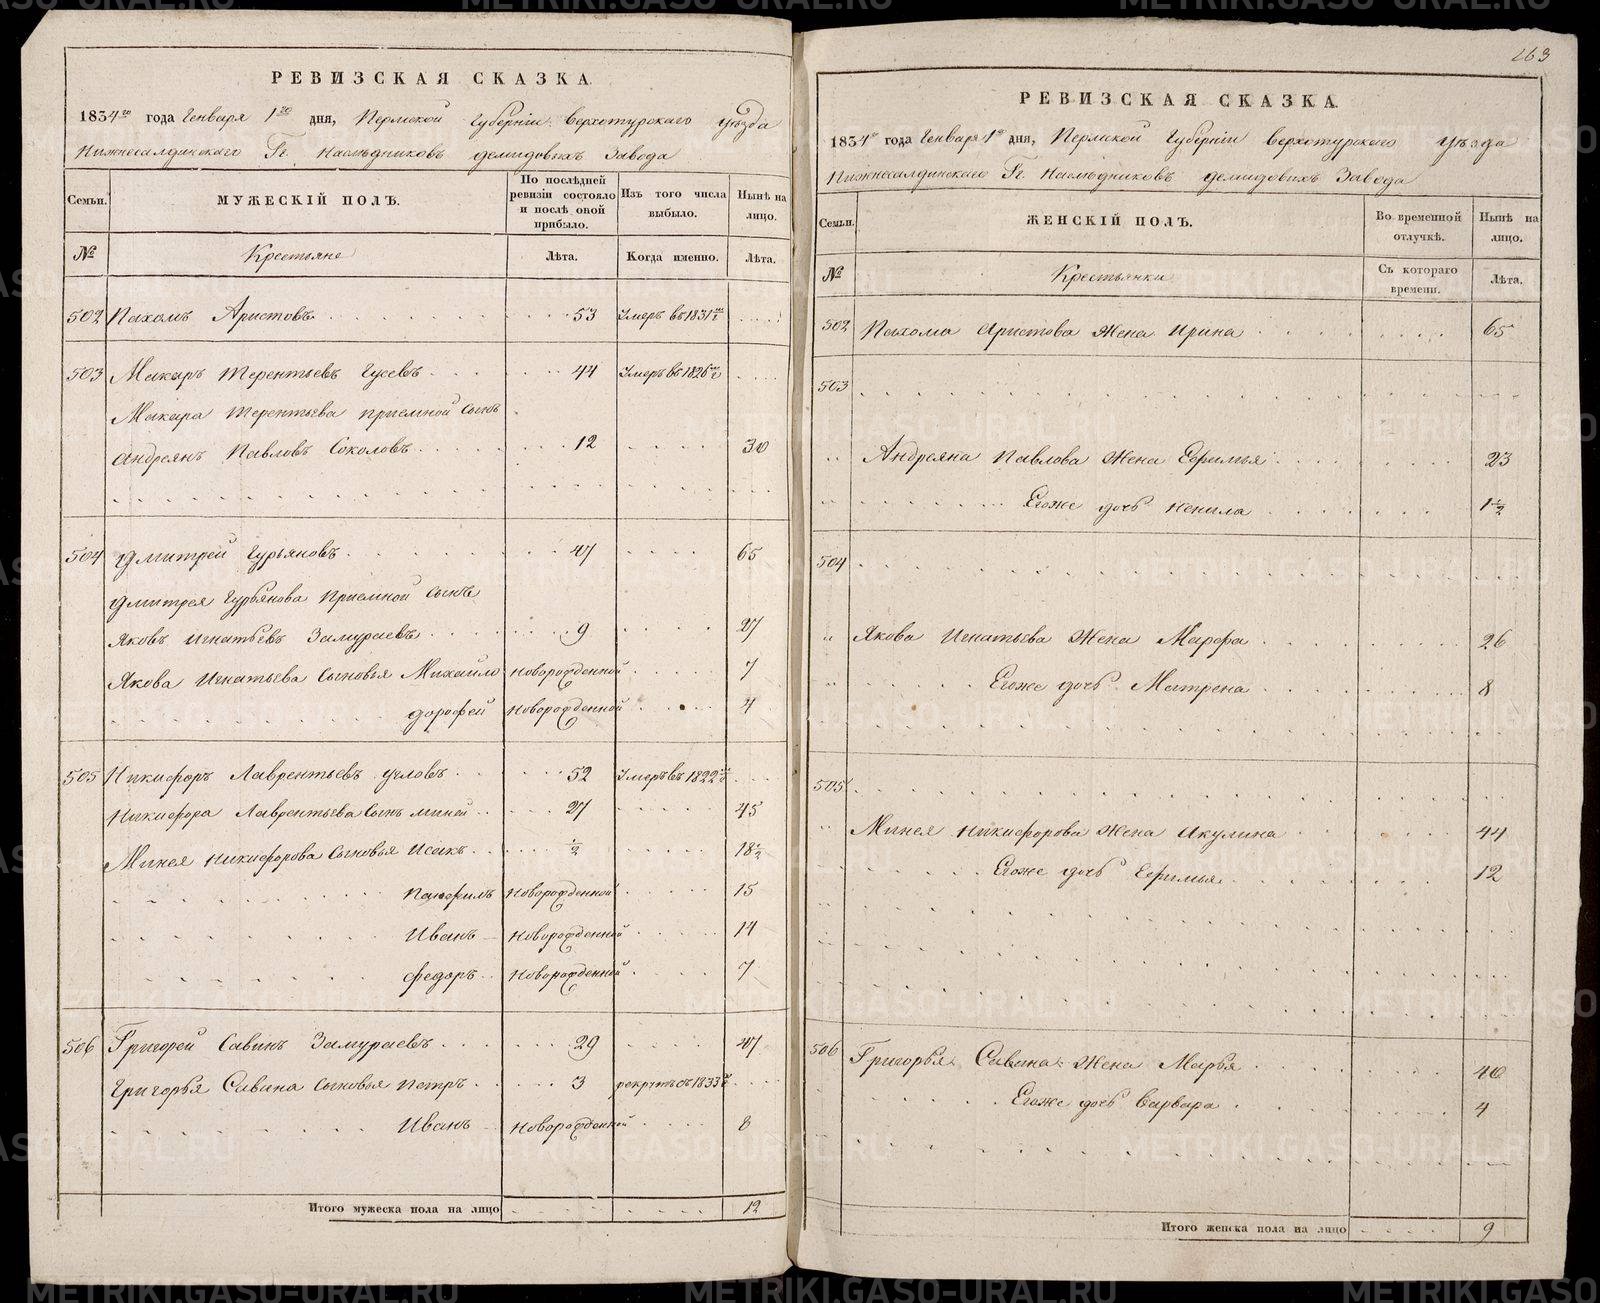 РЕВИЗСКАЯ СКАЗКА.
1834го года Генваря 1го дня, Пермской Губернiи Верхотурского уѣзда
Нижнесалдинского Гг. Наслѣдниковъ Демидовыхъ Завода
Семьи.
МУЖЕСКIЙ ПОЛЪ.
По послѣдней ревизiи состояло и послѣ оной прибыло.
Изъ того числа выбыло.
Нынѣ на лицо.
№
Крестьяне
Лѣта.
Когда именно.
Лѣта.
502 Пахомъ Аристовъ 53 Умеръ въ 1831мъ
503 Макаръ Терентьевъ Гусевъ 44 Умеръ въ 1826
Макара Терентьева прiемной сынъ
Андреянъ Павловъ Соколовъ 12 30
504 Дмитрей Гурьяновъ 47 65
Дмитрея Гурьянова прiемной сынъ
Яковъ Игнатьевъ Замураевъ 9 27
Якова Игнатьева сыновья Михайло новорожденной 7
Дорофей новорожденной 4
505 Никифоръ Лаврентьевъ 52 Умеръ въ 1822
Никифора Лаврентьева сынъ Миней 27 45
Минея Никифорова сыновья Исакъ ½ 18½
Панфилъ новорожденной 15
Иванъ новорожденной 14
Федоръ новорожденной 7
506 Григорей Савинъ Замураевъ 29 47
Григорья Савина сыновья Петръ 3 рекрутъ съ 1833
Иванъ новорожденной 8
Итого мужеска пола на лицо 12
263
РЕВИЗСКАЯ СКАЗКА.
1834го года Генваря 1го дня, Пермской Губернiи Верхотурского уѣзда
Нижнесалдинского Гг. Наслѣдниковъ Демидовыхъ Завода
Семьи.
ЖЕНСКIЙ ПОЛЪ.
Во временной отлучкѣ.
Нынѣ на лицо.
№
Крестьянки
Съ котораго времени.
Лѣта.
502 Пахома Аристова жена Ирина 65
503
Андреяна Павлова жена Ефимья 23
Егоже дочь Ненила 1½
504
Якова Игнатьева жена Марфа 26
Егоже дочь Матрена 8
505
Минея Никифорова жена Акулина 44
Егоже дочь Ефимья 12
506 Григорья Савина жена Марья 40
Егоже дочь Варвара 4
Итого женска пола на лицо 9
METRIKI.GASO-URAL.RU